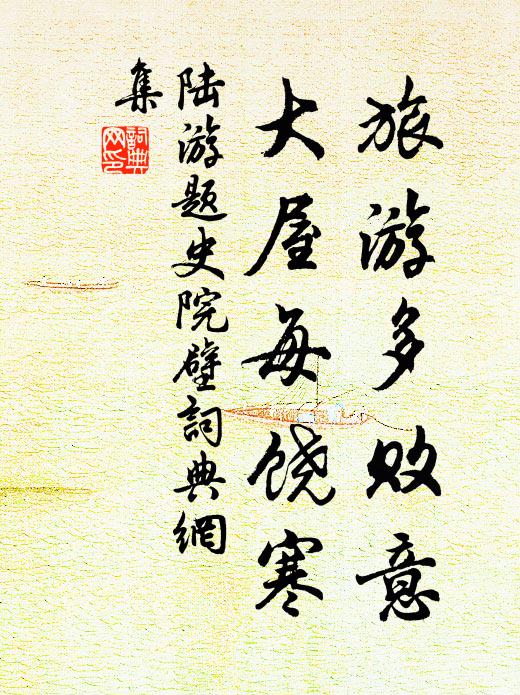 旅游多败意
大屋每饶寒
陆游题史院壁詞典網
集
詞典
网印